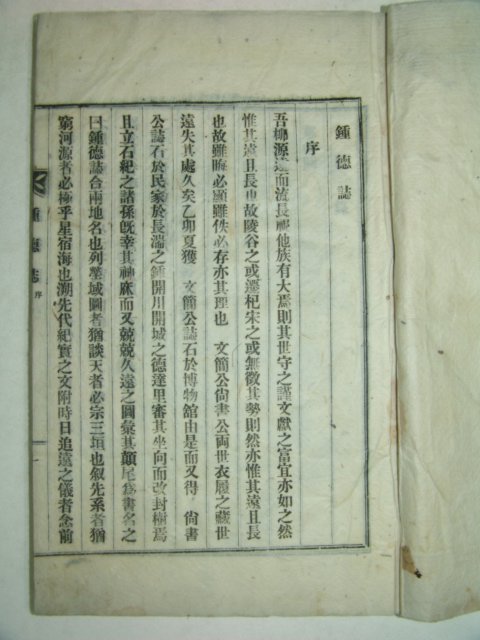 鍾德誌
序
吾柳源遠而流長視他族有大焉則其世守之謹文獻之富宜亦如之然
惟其遠且長也故陵谷之或遷杞宋之或無徵其勢則然亦惟其遠且長
也故雖晦必顯雖佚必存亦其理也 文簡公尙書公両世衣履之藏世
遠失其處久矣乙卯夏獲 文簡公誌石於博物館由是而又得 尙書
公誌石於民家於長湍之鍾開川開城之德達里審其坐向而改封樹焉
且立石紀之諸孫旣幸其神庥而又兢兢久遠之圖彙其顚尾爲書名之
曰鍾德誌合兩地名也列塋域圖者猶談天者必宗三垣也叙先系者猶
窮河源者必極乎星宿海也溯先代紀實之文附時日追遠之儀者念前
鍾德誌 序 一